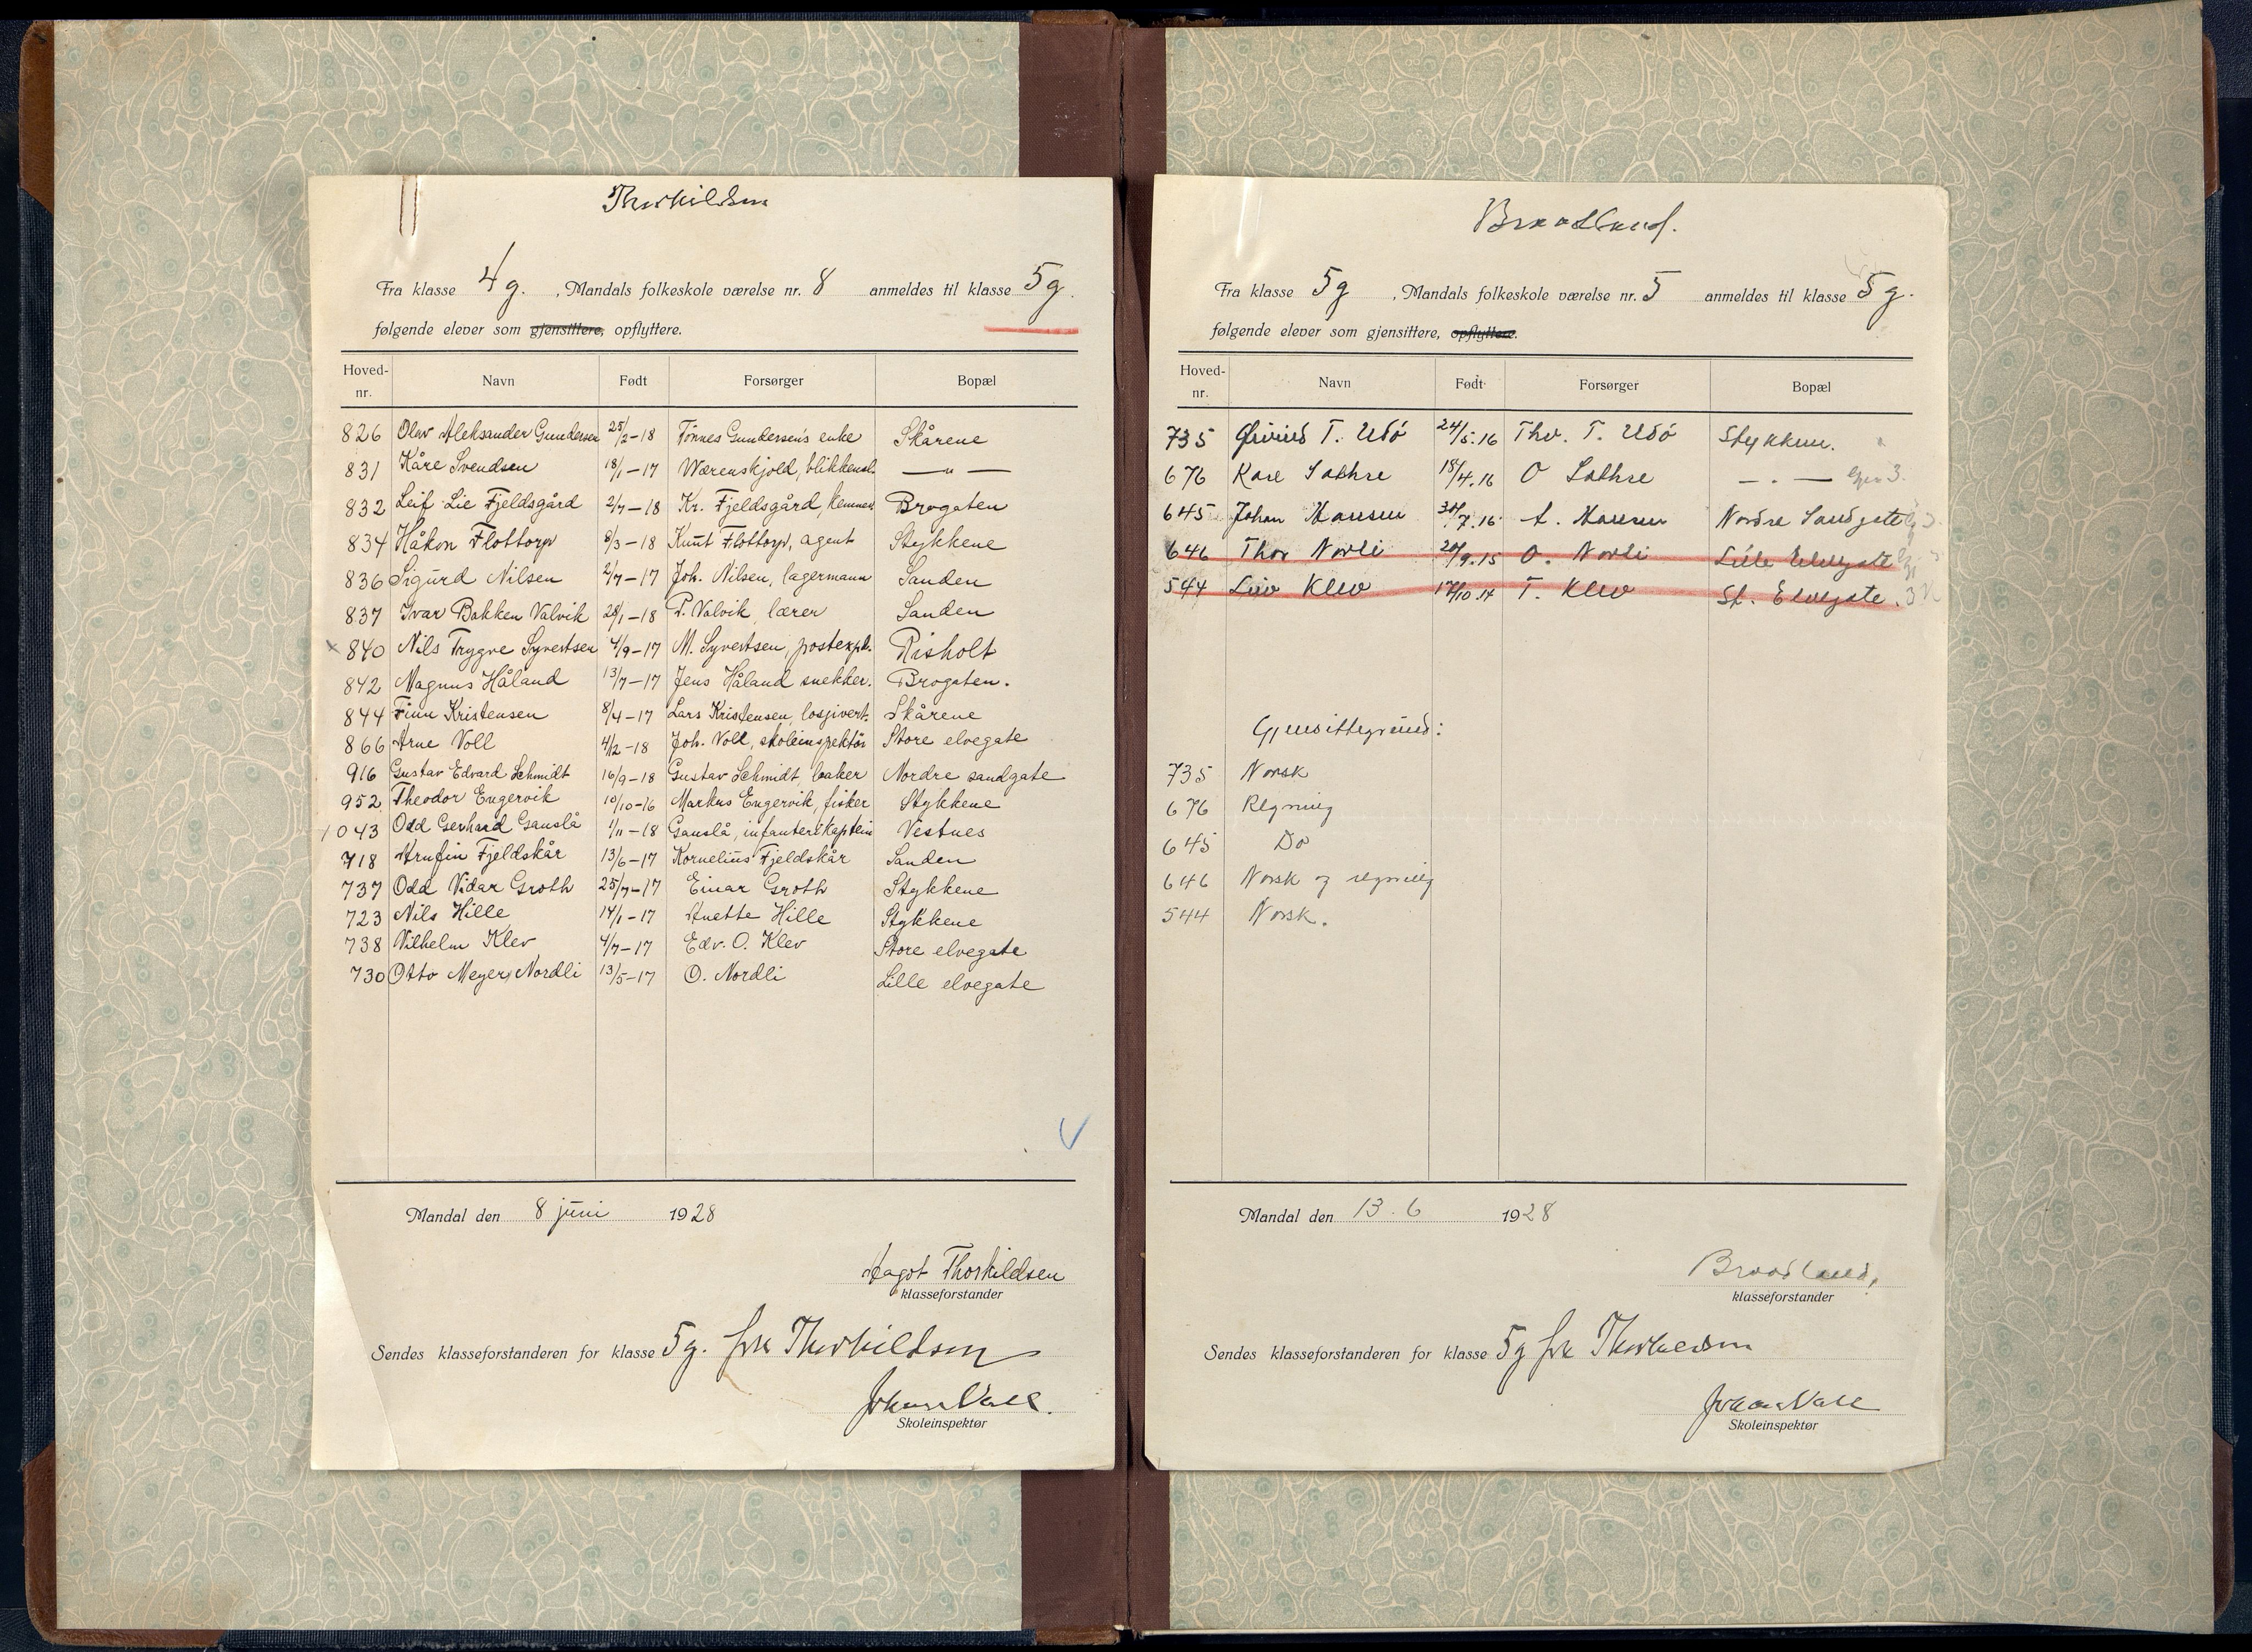 Thorkildsen
Fra klasse 4g. , Mandals folkeskole værelse nr. 8 anmeldes til klasse 5g.
følgende elever som gjensittere, opflyttere.
Hoved-nr. Navn Født Forsørger Bopæl
826 Olav Aleksander Gundersen 25/2-18 Tönnes Gundersens enke Skårene
831 Kåre Svendsen 18/1-17 Wærenskjold, blikkensl. — " —
832 Leif Lie Fjeldsgård 2/7-18 Kr. Fjeldsgård, kemner Brogaten
834 Håkon Flottorp 8/3-18 Knut Flottorp, agent Stykkene
836 Sigurd Nilsen 2/7-17 Joh. Nilsen, lagermann Sanden
837 Ivar Bakken Valvik 28/1-18 P. Valvik, lærer Sanden
x 840 Nils Trygve Syvertsen 4/9-17 M. Syvertsen, postexp. Risholt
842 Magnus Håland 13/7-17 Jens Håland snekker. Brogaten.
844 Finn Kristensen 8/4-17 Lars Kristensen, losjivert. Skårene
866 Arne Voll 4/2-18 Joh. Voll, skoleinspektör Store elvegate
916 Gustav Edvard Schmidt 16/9-18 Gustav Schmidt, baker Nordre sandgate
952 Theodor Engervik 10/10-16 Markus Engervik, fisker Stykkene
1043 Odd Gerhard Gauslå 1/11-18 Gauslå, infanterikaptein Vestnes
718 Arnfin Fjeldskår 13/6-17 Kornelius Fjeldskår Sanden
737 Odd Vidar Groth 25/7-17 Einar Groth Stykkene
723 Nils Hille 14/1-17 Anette Hille Stykkene
738 Vilhelm Klev 4/7-17 Edv. O. Klev Store elvegate
730 Otto Meyer Nordli 13/5-17 O. Nordli Lille elvegate
Mandal den 8 juni 1928
Aagot Thorkildsen
klasseforstander
Sendes klasseforstanderen for klasse 5g. frk Thorkildsen
Johan Voll.
Skoleinspektør
Braadland.
Fra klasse 5g , Mandals folkeskole værelse nr. 5 anmeldes til klasse 5g.
følgende elever som gjensittere, opflyttere.
Hoved-nr. Navn Født Forsørger Bopæl
735 Øivind T. Udö 24/5.16 Thv. T. Udö Stykkene.
676 Kare Sathre 18/4.16 O Sathre — . —
645 Johan Hansen 30/7.16 A. Hansen Nordre Sandgate
646 Thor Norli 20/9.15 O. Norli Lille Elvegate
544 Liv Klev 17/10.14 T. Klev St. Elvegate.
Gjensittegrund:
735 Norsk
676 Regning
645 Do
646 Norsk og regning
544 Norsk.
Mandal den 13.6 1928
Braadland.
klasseforstander
Sendes klasseforstanderen for klasse 5g frk Thorkildsen
Johan Voll
Skoleinspektør